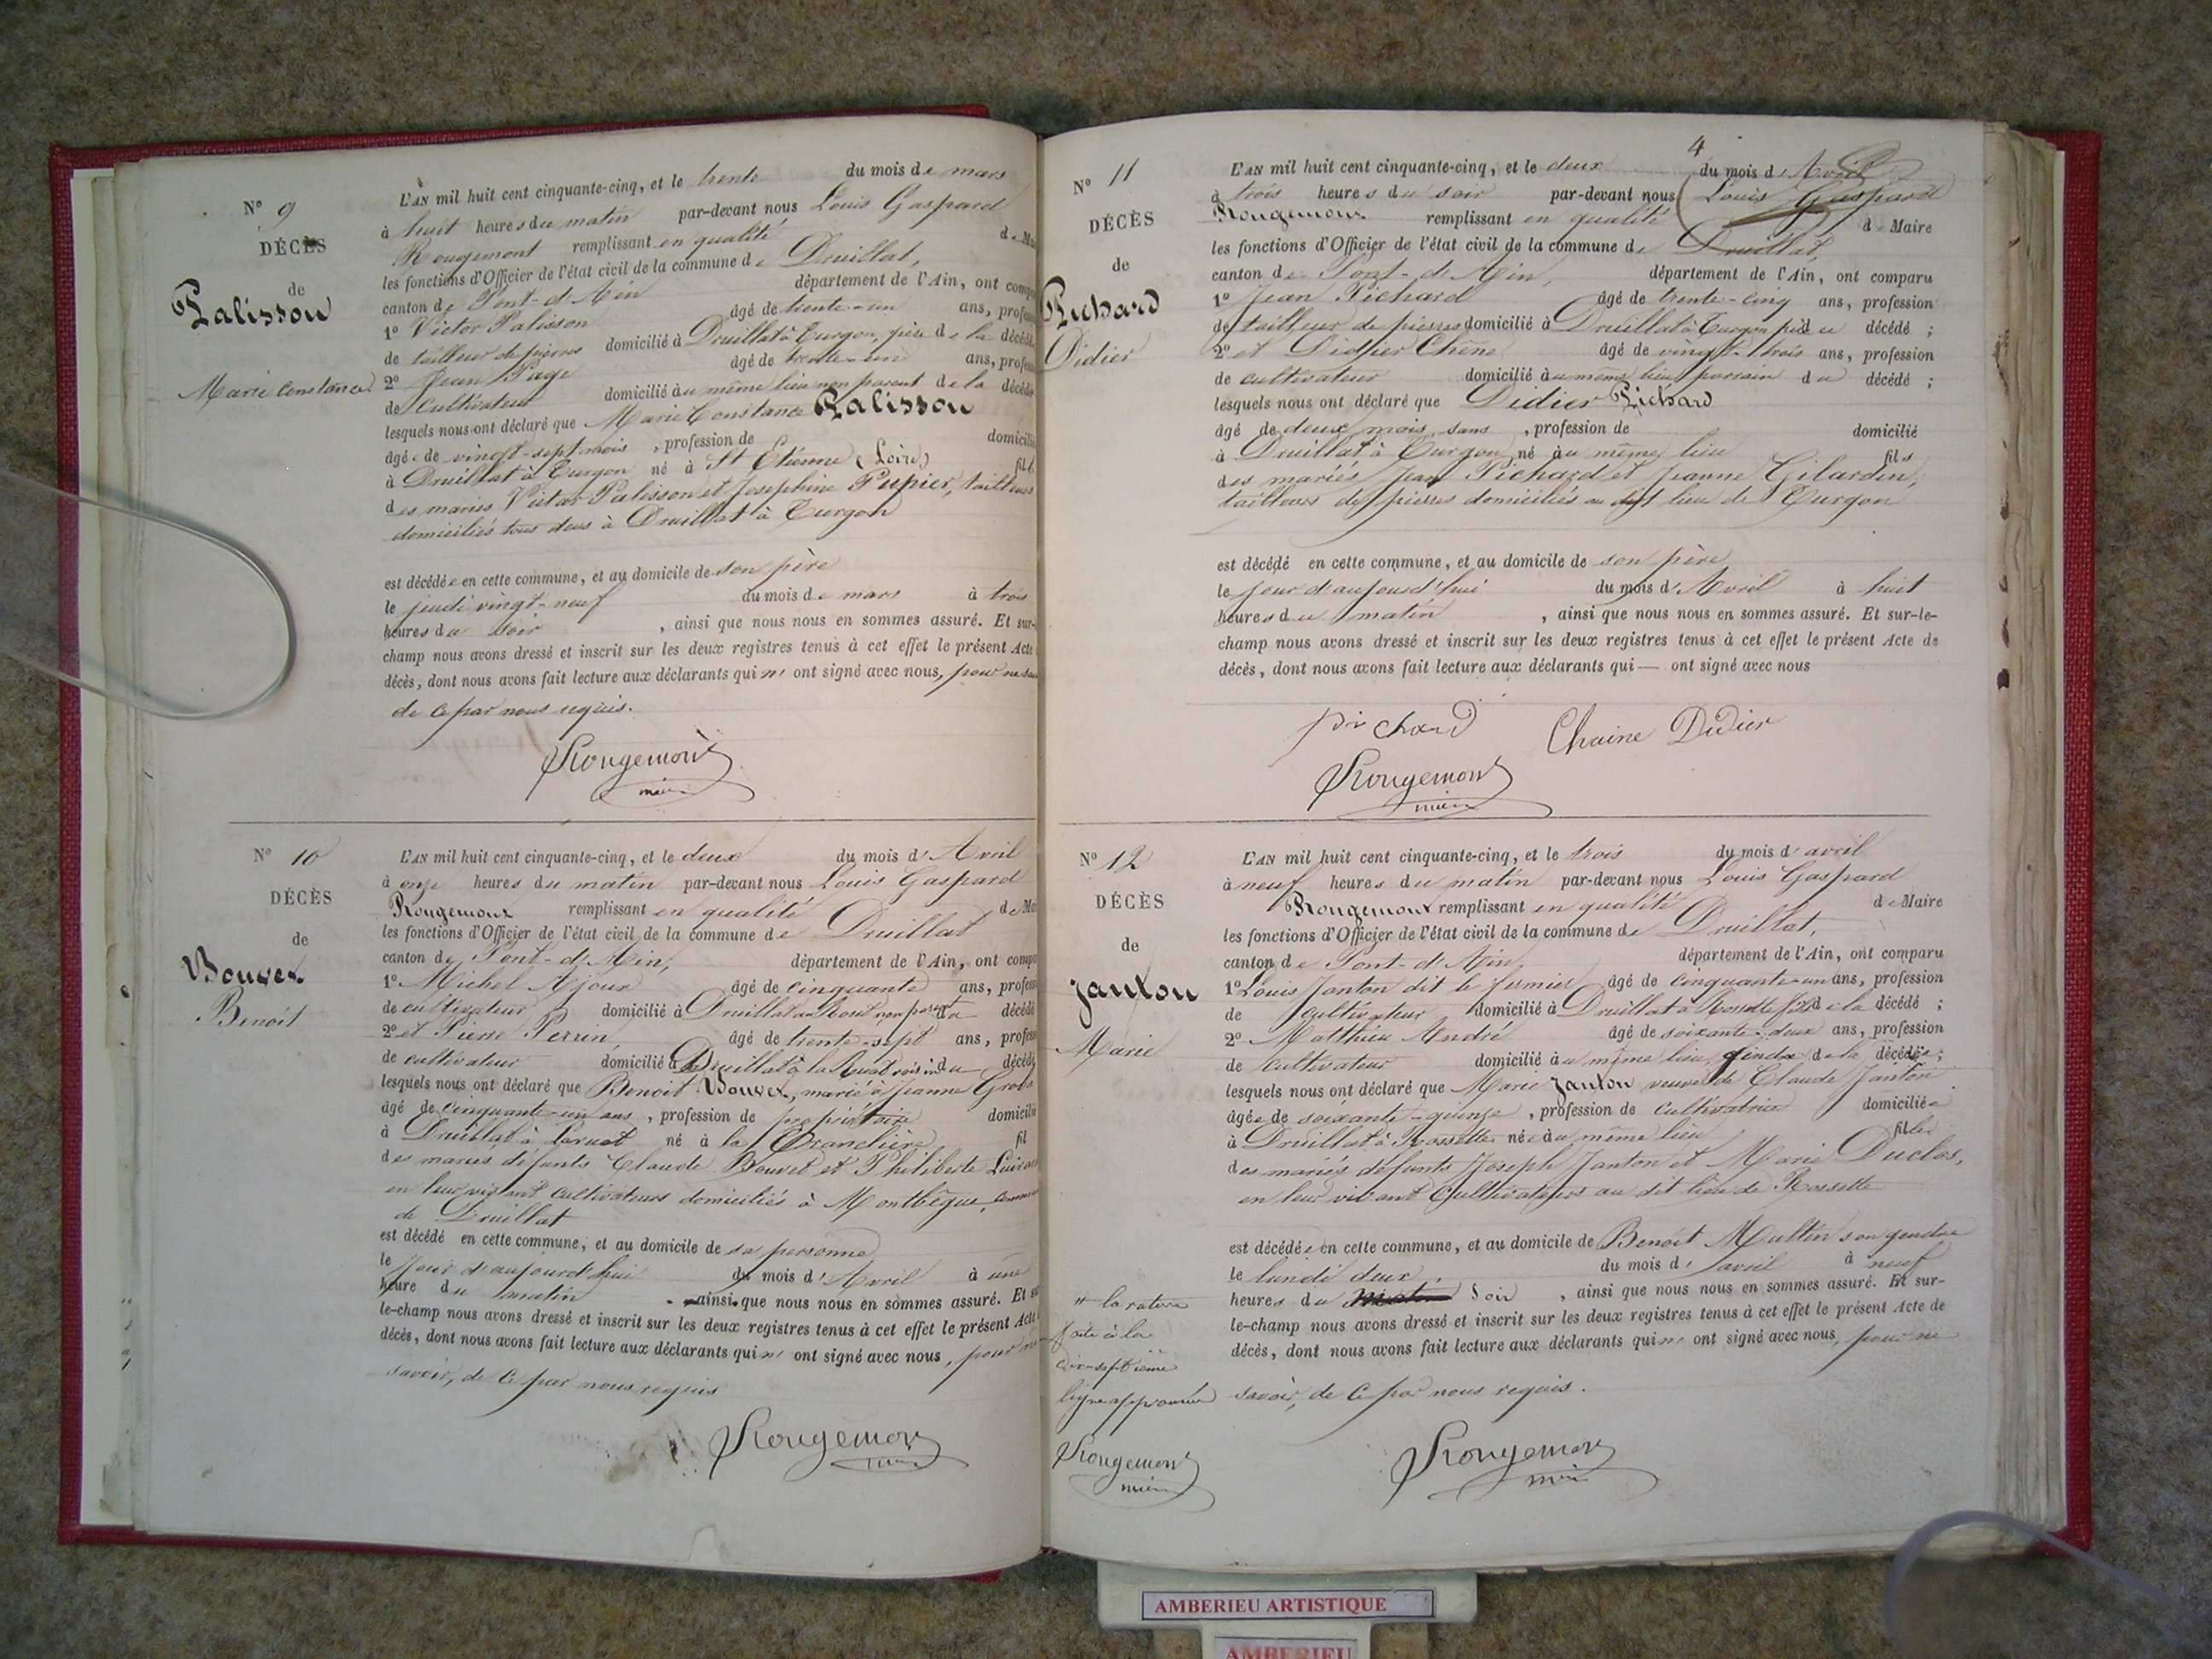 N° 9
DÉCÈS
de
Palisson
Marie Constance
L'AN mil huit cent cinquante-cinq, et le trente du mois de mars
à huit heures du matin par-devant nous Louis Gaspard
Rougemont remplissant en qualité de
les fonctions d'Officier de l'état civil de la commune de Druillat,
canton de Pont-d'Ain département de l'Ain, ont
1° Victor Palisson âgé de trente-un ans,
de tailleur de pierres domicilié à Druillat à Turgon, père de la
2° Jean Page âgé de trente-un ans,
de Cultivateur domicilié au même lieu non parent de la
lesquels nous ont déclaré que Marie Constance Palisson
âgée de vingt-sept mois, profession de
à Druillat à Turgon né à St Etienne (Loire)
des mariés Victor Palisson et Josephine Pupier, tailleurs
domiciliés tous deux à Druillat à Turgon
est décédée en cette commune, et au domicile de son père
le jeudi vingt-neuf du mois de mars à trois
heures du soir, ainsi que nous nous en sommes assuré. Et sur-
champ nous avons dressé et inscrit sur les deux registres tenus à cet effet le présent Acte
décès, dont nous avons fait lecture aux déclarants qui n' ont signé avec nous, pour ne
de ce par nous requis.
Rougemont
maire
N° 10
DÉCÈS
de
Bouvet
Benoit
L'AN mil huit cent cinquante-cinq, et le deux du mois d'Avril
à onze heures du matin par-devant nous Louis Gaspard
Rougemont remplissant en qualité de
les fonctions d'Officier de l'état civil de la commune de Druillat
canton de Pont-d'Ain, département de l'Ain, ont
1° Michel Ajoux âgé de cinquante ans,
de cultivateur domicilié à Druillat non parent du décédé
2° et Pierre Perrin, âgé de trente-sept ans,
de cultivateur domicilié à Druillat à la voisin du
lesquels nous ont déclaré que Benoit Bouvet, marié à Jeanne
âgé de cinquante-un ans, profession de propriétaire
à Druillat à né à la fil
des mariés défunts Claude Bouvet et Philiberte
en leur vivant cultivateurs domiciliés à Monthêgue,
de Druillat
est décédé en cette commune, et au domicile de sa personne
le jour d'aujourd'hui du mois d'Avril à une
heure du matin ainsi que nous nous en sommes assuré. Et
le-champ nous avons dressé et inscrit sur les deux registres tenus à cet effet le présent Acte
décès, dont nous avons fait lecture aux déclarants qui n' ont signé avec nous, pour
savoir, de ce par nous requis
Rougemont
maire
4
N° 11
DÉCÈS
de
Pichard
Didier
L'AN mil huit cent cinquante-cinq, et le deux du mois d'Avril
à trois heures du soir par-devant nous Louis Gaspard
Rougemont remplissant en qualité de Maire
les fonctions d'Officier de l'état civil de la commune de Druillat,
canton de Pont-d'Ain, département de l'Ain, ont comparu
1° Jean Pichard âgé de trente-cinq ans, profession
de tailleur de pierres domicilié à Druillat à Turgon père du décédé;
2° et Didier Chêne âgé de vingt-trois ans, profession
de cultivateur domicilié au même lieu parrain du décédé;
lesquels nous ont déclaré que Didier Pichard
âgé de deux mois sans, profession de domicilié
à Druillat à Turgon né au même lieu fils
des mariés Jean Pichard et Jeanne Gilardin,
tailleurs de pierres domiciliés au dit lieu de Turgon
est décédé en cette commune, et au domicile de son père
le jour d'aujourd'hui du mois d'Avril à huit
heures du matin, ainsi que nous nous en sommes assuré. Et sur-le-
champ nous avons dressé et inscrit sur les deux registres tenus à cet effet le présent Acte de
décès, dont nous avons fait lecture aux déclarants qui — ont signé avec nous
pichard Chaine Didier
Rougemont
maire
N° 12
DÉCÈS
de
Janton
Marie
L'AN mil huit cent cinquante-cinq, et le trois du mois d'avril
à neuf heures du matin par-devant nous Louis Gaspard
Rougemont remplissant en qualité de Maire
les fonctions d'Officier de l'état civil de la commune de Druillat,
canton de Pont-d'Ain, département de l'Ain, ont comparu
1° Louis Janton dit le fermier âgé de cinquante-un ans, profession
de cultivateur domicilié à Druillat à Rossette fils de la décédé;
2° Matthieu André âgé de soixante-deux ans, profession
de cultivateur domicilié au même lieu, gendre de la décédée;
lesquels nous ont déclaré que Marie Janton veuve de Claude Janton
âgée de soixante-quinze, profession de cultivatrice domiciliée
à Druillat à Rossette née au même lieu fille
des mariés défunts Joseph Janton et Marie Duclos,
en leur vivant cultivateurs au dit lieu de Rossette
est décédée en cette commune, et au domicile de Benoit Multin son gendre
le lundi deux, du mois d'avril à neuf
heures du soir, ainsi que nous nous en sommes assuré. Et sur-
le-champ nous avons dressé et inscrit sur les deux registres tenus à cet effet le présent Acte de
décès, dont nous avons fait lecture aux déclarants qui n' ont signé avec nous, pour ne
savoir, de ce par nous requis.
Rougemont
maire
# la rature
faite à la
dix-septième
ligne approuvée
Rougemont
maire
AMBERIEU ARTISTIQUE
AMBERIEU